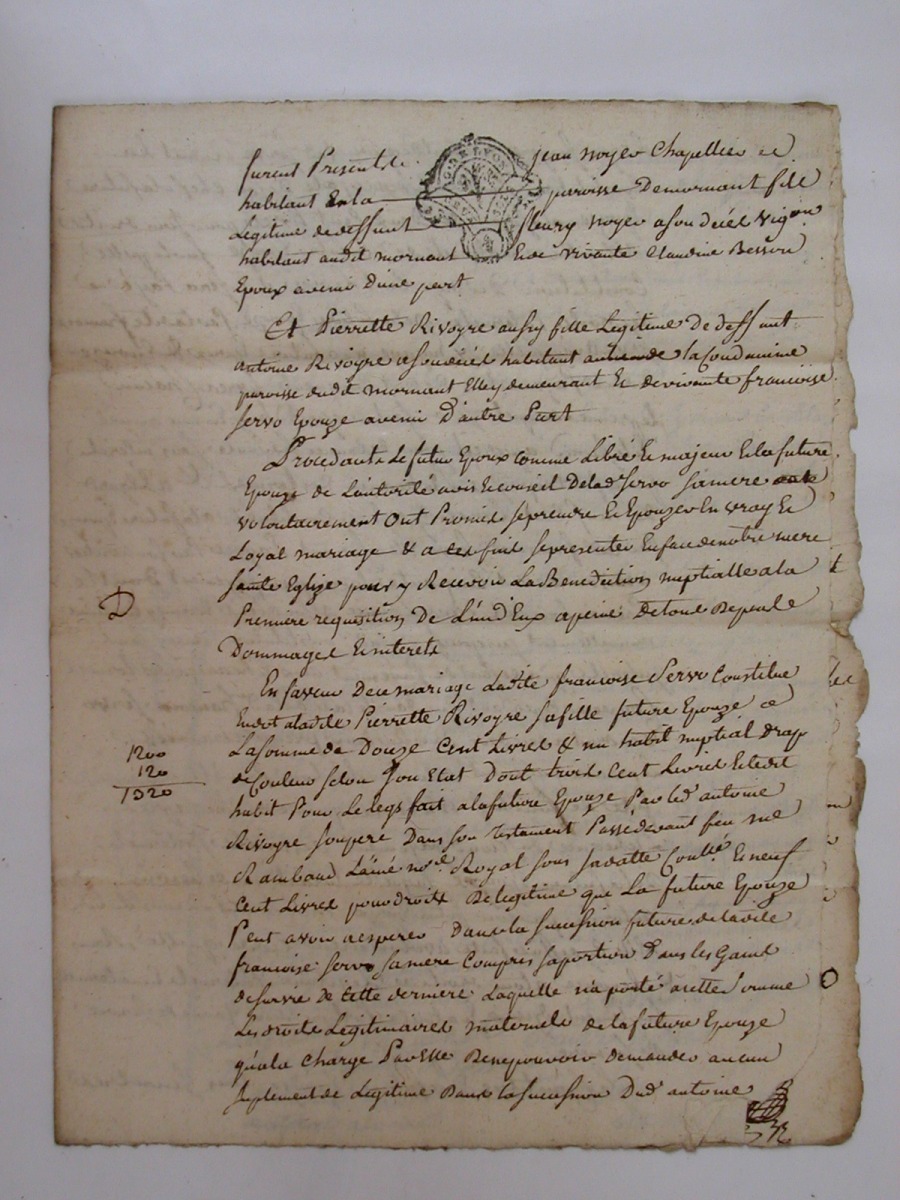 furent Presents jean noyer Chapellier
habitant en la paroisse de mornant fils
Legitime de deffunt fleury noyer a son décés vigon
habitant audit mornant Et de vivante Claudine Besson
Epoux avenir d'une part
Et Pierrette Rivoyre aussy fille Legitime de deffunt
antoine Rivoyre a son décés habitant au de la Condamine
paroisse dudit mornant Elle y demeurant Et de vivante francoise
servo Epouze avenir D'autre Part
Procedants Le futur Epoux comme Libre Et majeur Et la future
Epouze de L'autorité avis Et conseil De lad servo sa mere
volontairement Ont Promis se prendre Et Epouzer En vray Et
Loyal mariage & a ces fins se presenter En face de notre mere
sainte Eglize pour y Recevoir La Benediction nuptialle a la
Premiere requisition De L'un d'Eux a peine De tous Depends
Dommages Et interets
D
En faveur De ce mariage Ladite francoise Servo Constitue
En dot a ladite Pierrette Rivoyre sa fille future Epouze
La somme de Douze Cent Livres & un habit nuptial drap
1200
120
1320
de Couleur selon son Etat Dont trois Cent Livres Et ledit
habit Pour Le legs fait a la future Epouze Par led antoine
Rivoyre son pere Dans son testament Passé devant feu me
Rambaud L'ainé nore Royal sous sa datte Coullé Et neuf
Cent Livres pour droits De legitime que La future Epouze
Peut avoir a esperer Dans la succession future de ladite
francoise servo sa mere Compris sa portion Dans les Gains
de survie de Cette derniere Laquelle n'a porté a cette Somme
Les droits Legitimaires maternels de la future Epouze
qu'a la Charge Par Elle De ne pouvoir demander aucun
suplement de Legitime Dans la succession Dud antoine